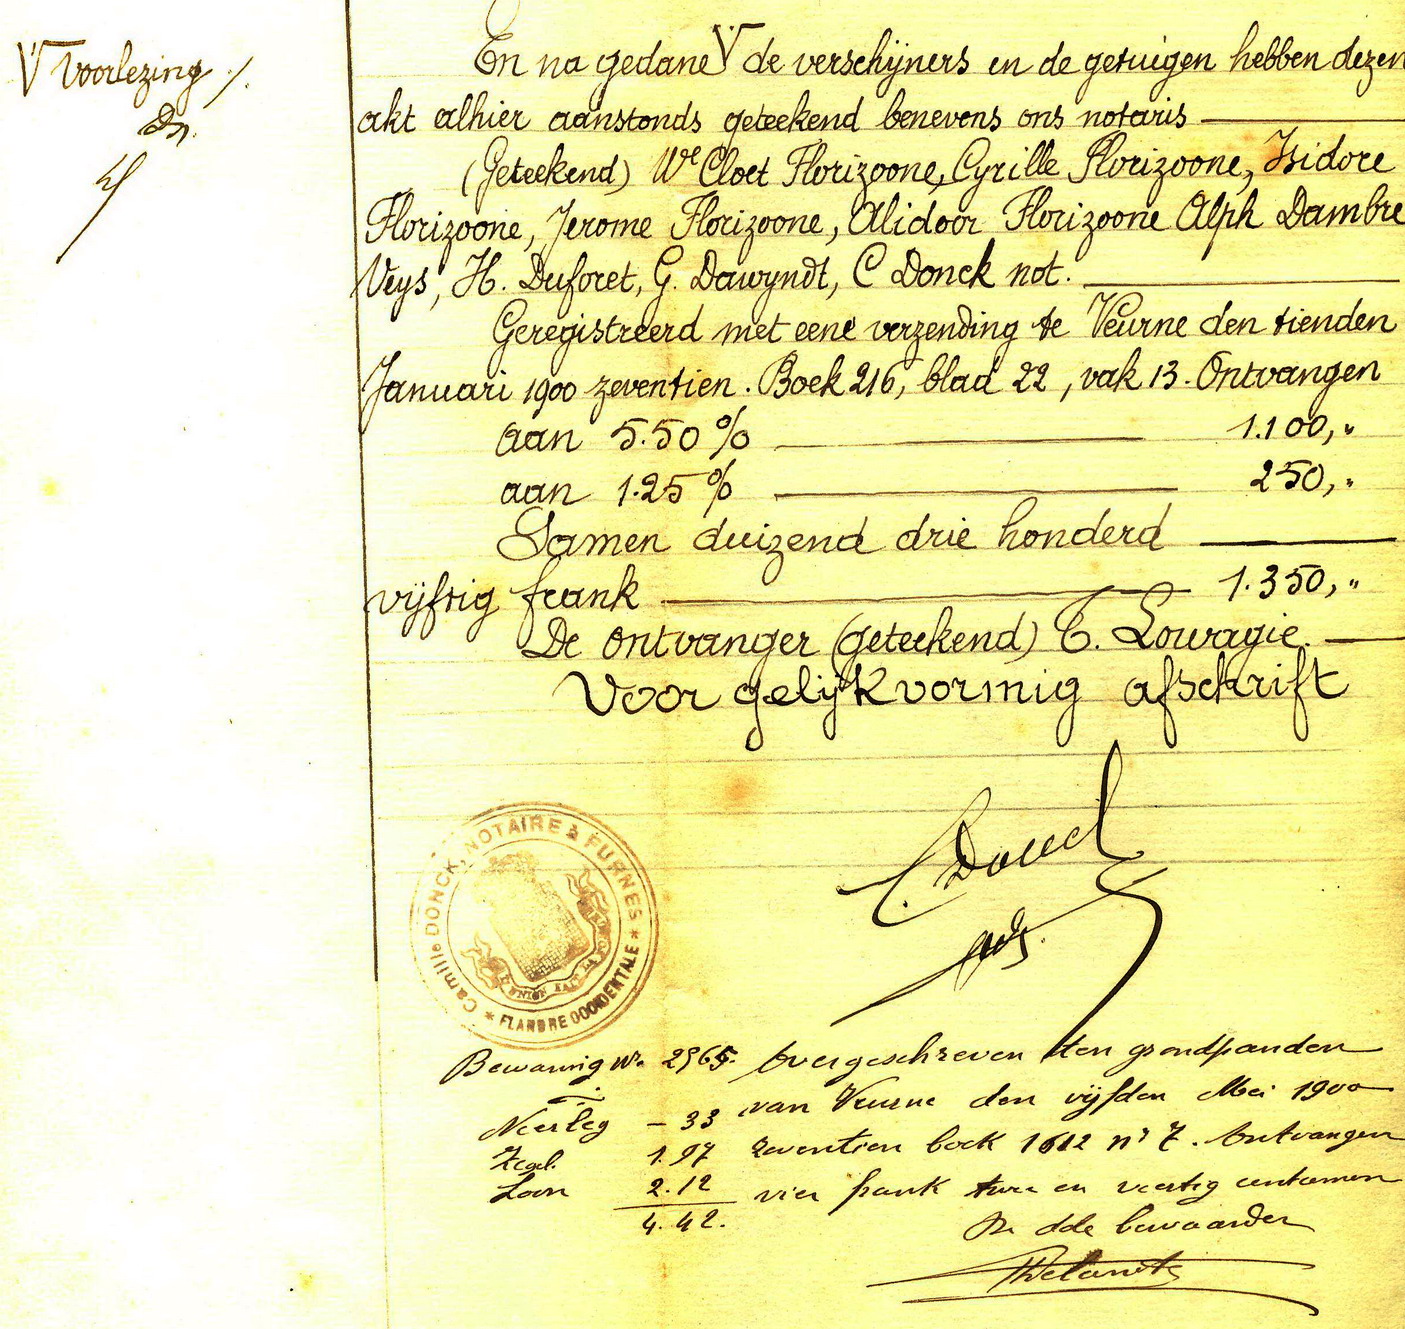 V Voorlezing ./.
En na gedane V de verschijners en de getuigen hebben dezen
akt alhier aanstonds geteekend benevens ons notaris
(Geteekend) We Cloet Florizoone, Cyrille Florizoone, Isidore
Florizoone, Jerome Florizoone, Alidoor Florizoone Alph Dambre
Veys, H. Duforet, G. Dawyndt, C Donck not.
Geregistreerd met eene verzending te Veurne den tienden
Januari 1900 zeventien. Boek 216, blad 22, vak 13. Ontvangen
aan 5.50 % 1.100,"
aan 1.25 % 250,"
Samen duizend drie honderd
vijftig frank 1.350,"
De ontvanger (geteekend) T. Lowagie.
Voor gelijkvormig afschrift
C. Donck
Camille DONCK, NOTAIRE à FURNES * FLANDRE OCCIDENTALE *
L'UNION FAIT LA FORCE
Bewaring nr. 2965. Overgeschreven ten grondpanden
van Veurne den vijfden Mei 1900
Neerleg – 33
zeventien boek 1612 nr 7. Ontvangen
Zegel. 1.97
Loon 2.12 vier frank twee en veertig centiemen
4.42.
De bewaarder